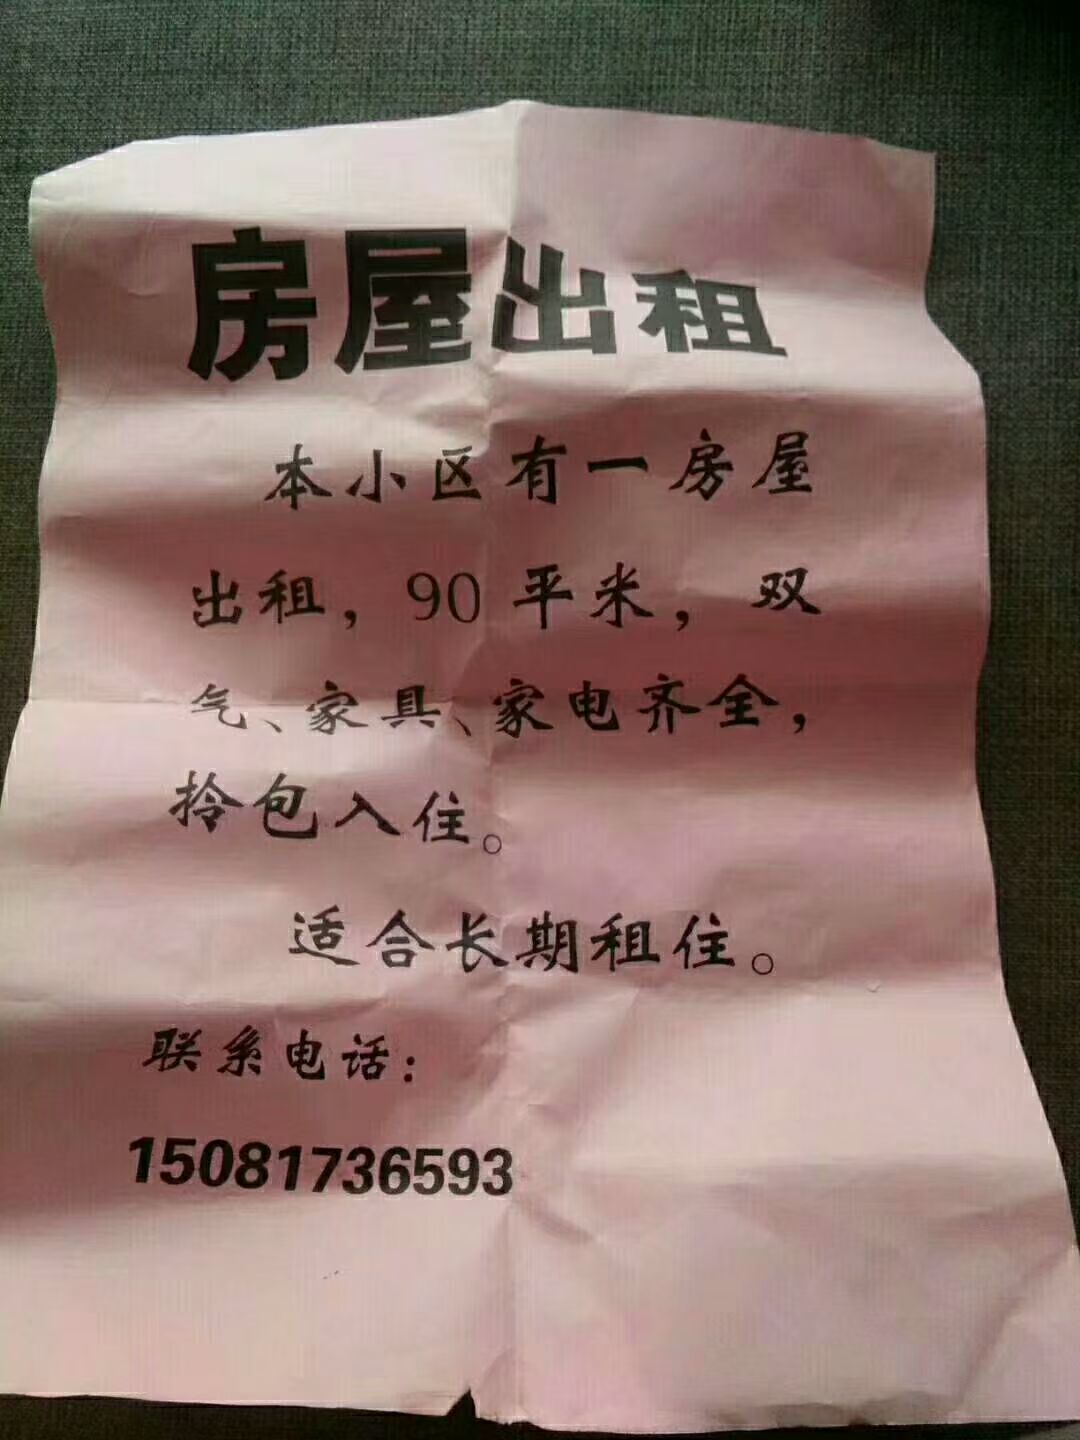 房屋出租
本小区有一房屋
出租，90平米，双
气、家具、家电齐全，
拎包入住。
适合长期租住。
联系电话：
15081736593